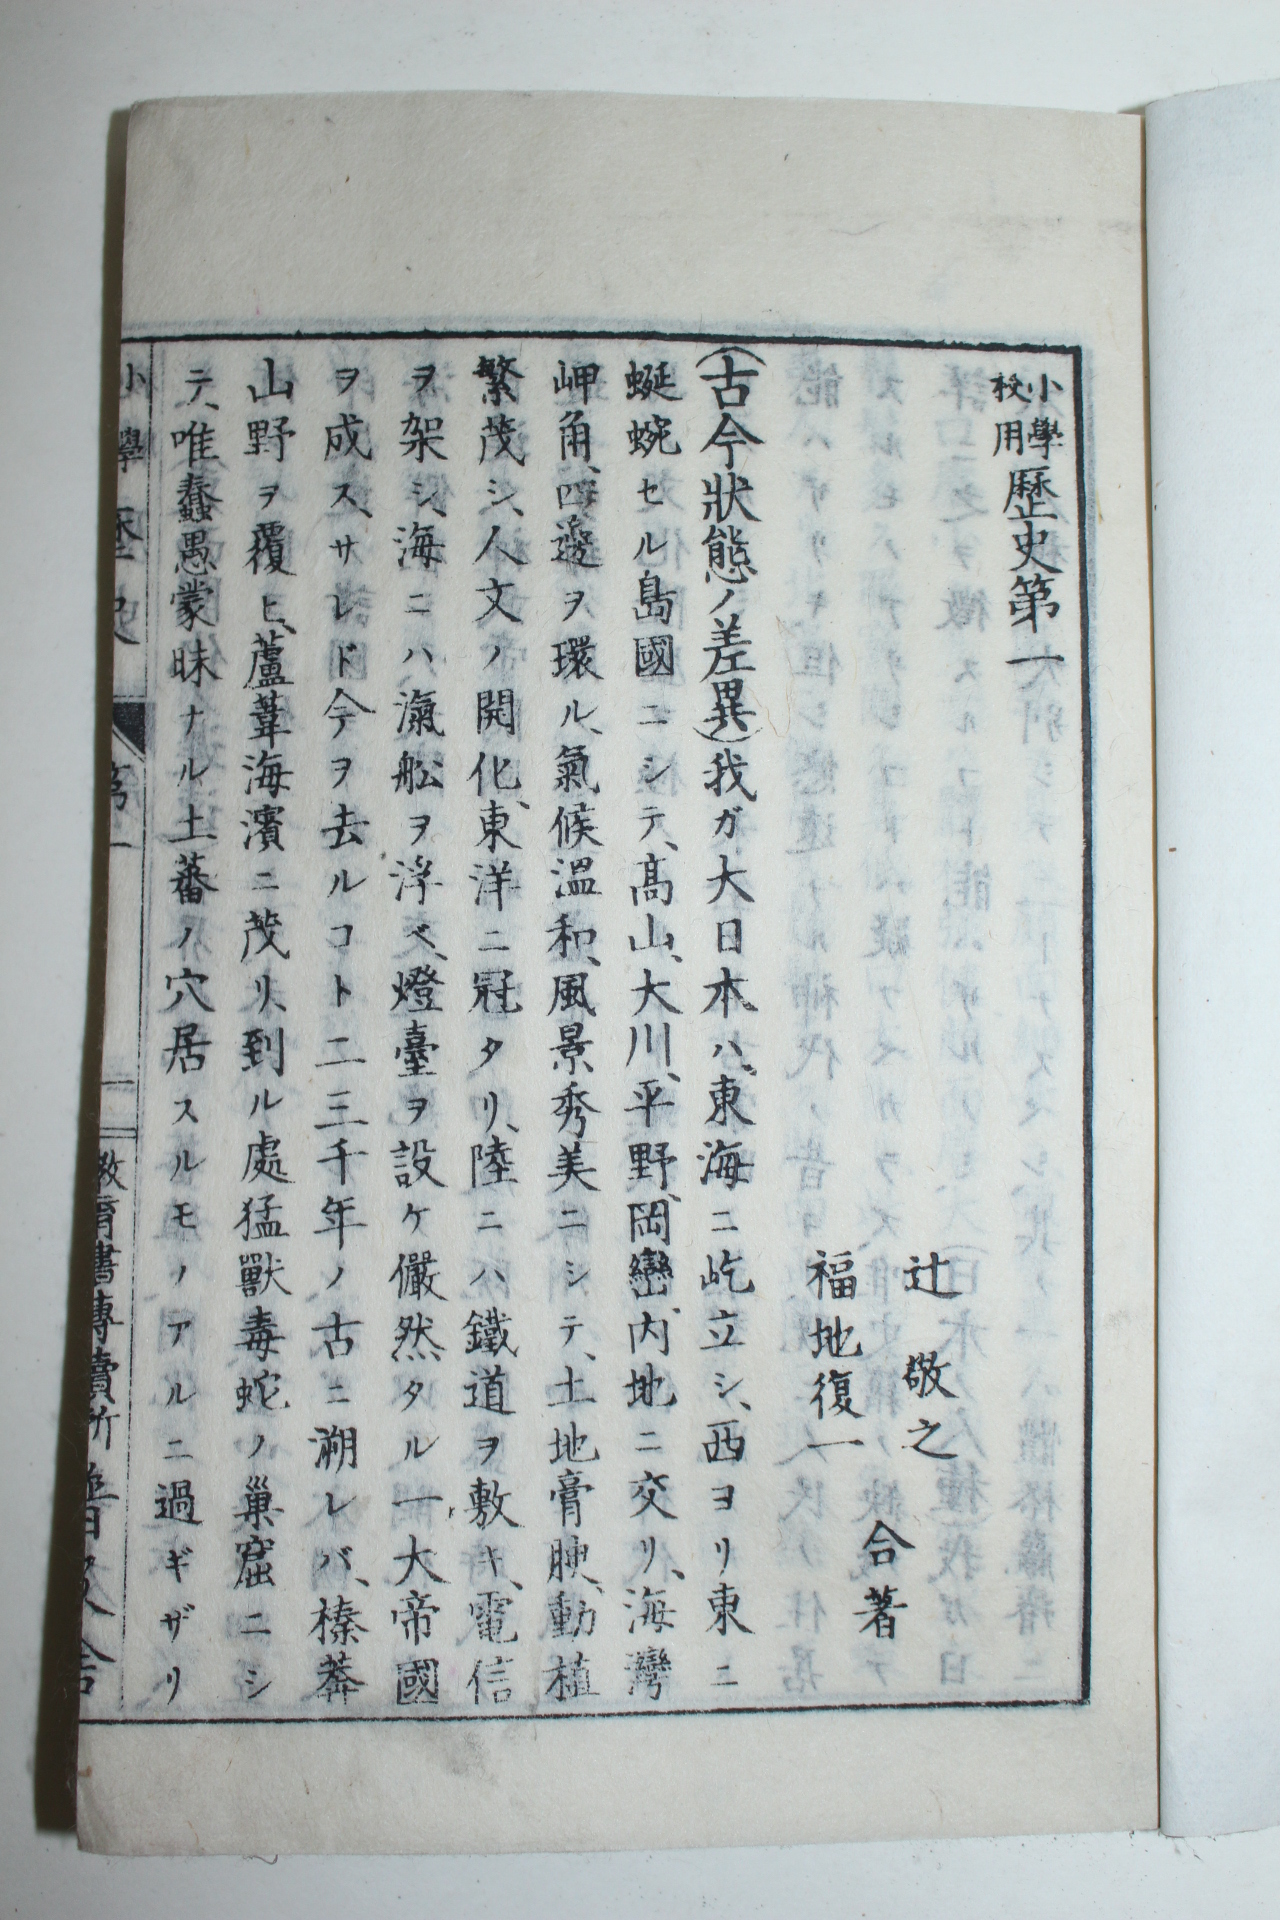 小學校用歷史第一
辻敬之
福地復一
合著
(古今狀態ノ差異)我ガ大日本ハ、東海ニ屹立シ、西ヨリ東ニ
蜒蜿セル島國ニシテ、高山、大川、平野、岡巒、內地ニ交リ、海灣
岬角、四邊ヲ環ル、氣候溫和、風景秀美ニシテ、土地膏腴、動植
繁茂シ、人文ノ開化、東洋ニ冠タリ、陸ニハ鐵道ヲ敷キ、電信
ヲ架シ、海ニハ滊舩ヲ浮ベ、燈臺ヲ設ケ儼然タル一大帝國
ヲ成ス、サレド今ヲ去ルコト二三千年ノ古ニ溯レバ、榛莽
山野ヲ覆ヒ、蘆葦海濱ニ茂リ、到ル處猛獸毒蛇ノ巢窟ニシ
テ、唯蠢愚蒙昧ナル土蕃ノ穴居スルモノアルニ過ギザリ
小學歷史 第一 一 教育書專賣所